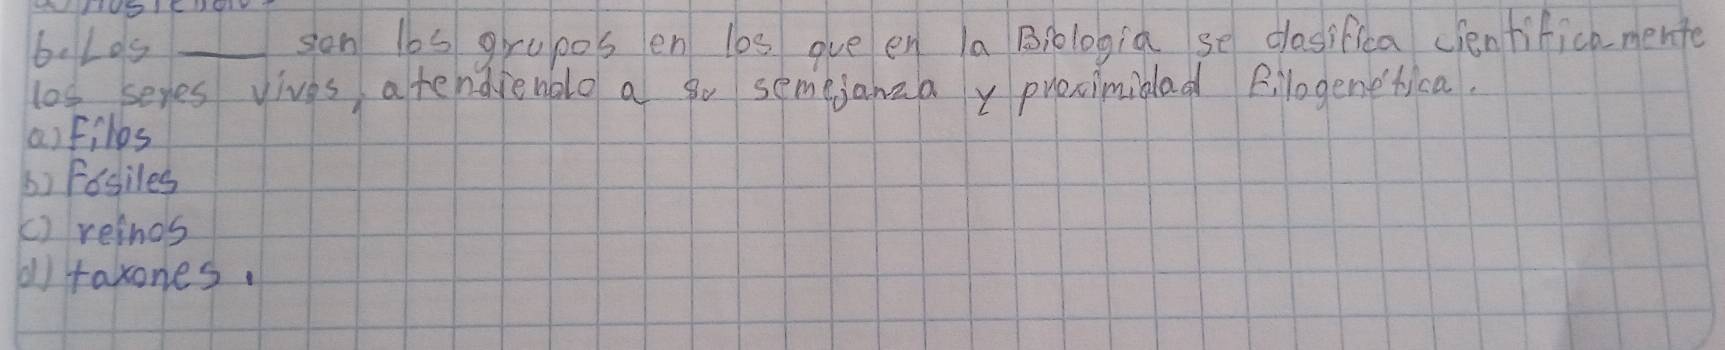 6. Los ___ son los grupos en los que en la Biología se clasifica cientificamente
los seres vivos, atendiendo a su semejanza y proximidad filogenética.
a) Filos
b) Fósiles
c) reinos
d) taxones.